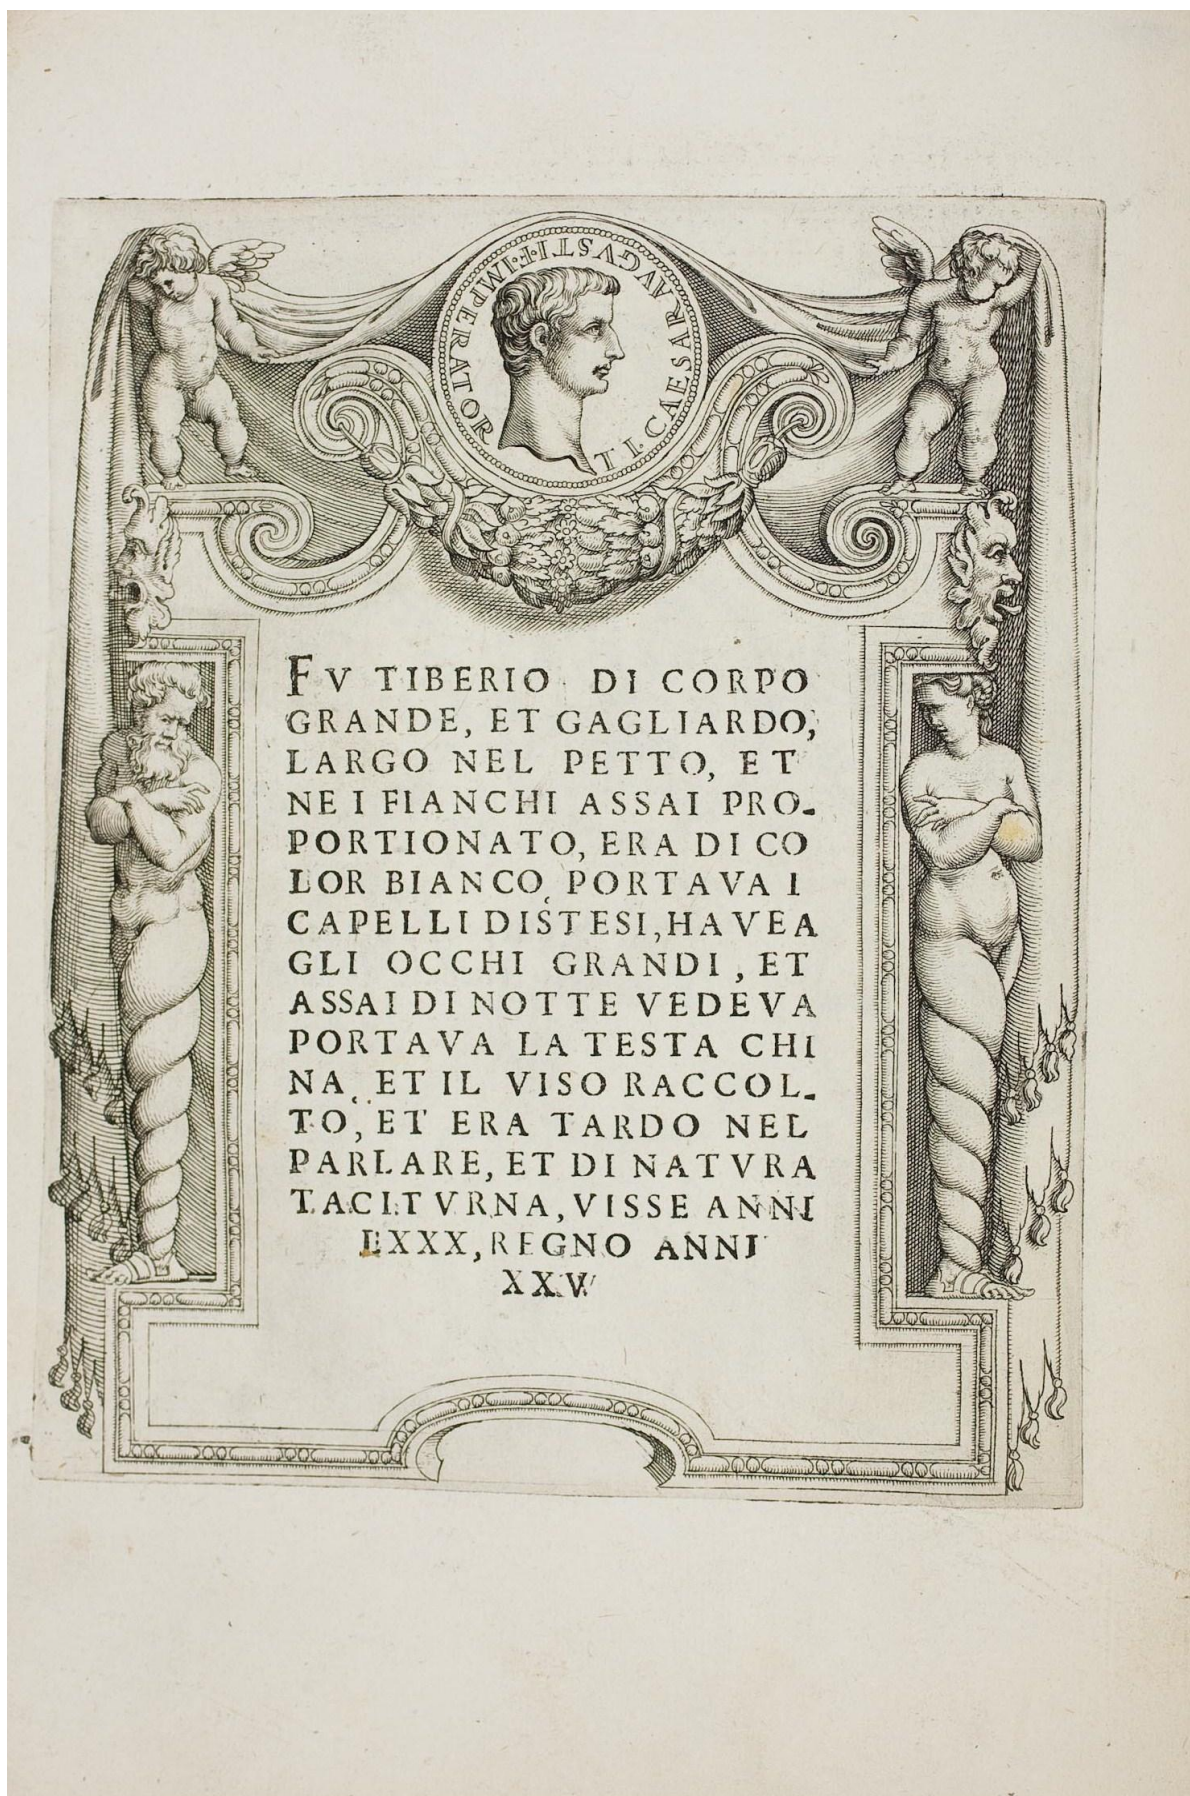 TI·CAESAR AVGVSTI·F·IMPERATOR
FV TIBERIO DI CORPO
GRANDE, ET GAGLIARDO,
LARGO NEL PETTO, ET
NE I FIANCHI ASSAI PRO-
PORTIONATO, ERA DI CO
LOR BIANCO, PORTAVA I
CAPELLI DISTESI, HAVEA
GLI OCCHI GRANDI, ET
ASSAI DI NOTTE VEDEVA
PORTAVA LA TESTA CHI
NA, ET IL VISO RACCOL-
TO, ET ERA TARDO NEL
PARLARE, ET DI NATVRA
TACITVRNA, VISSE ANNI
LXXX, REGNO ANNI
XXV